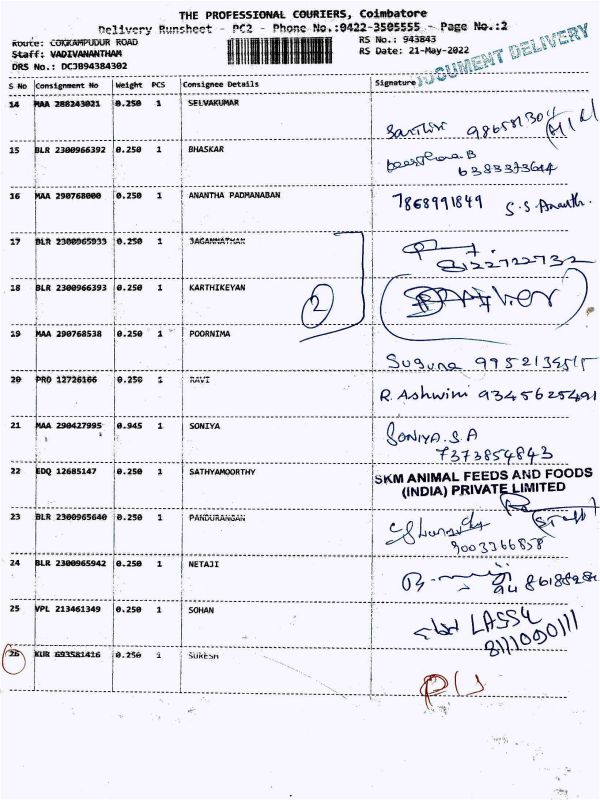 THE PROFESSIONAL COURIERS, Coimbatore
Delivery Runsheet - PC2 - Phone No.:0422-3505555 - Page No.:2
Route: COKKAMPUDUR ROAD
RS No.: 943843
Staff: VADIVANANTHAM
RS Date: 21-May-2022
DRS No.: DCJB94384302
DOCUMENT DELIVERY
S No Consignment No Weight PCS Consignee Details Signature
14 MAA 288243021 0.250 1 SELVAKUMAR
15 BLR 2300966392 0.250 1 BHASKAR
6383373644
16 MAA 290768000 0.250 1 ANANTHA PADMANABAN
7868991849 S.S. Ananth.
17 BLR 2300965933 0.250 1 JAGANNATHAN
8122722732
18 BLR 2300966393 0.250 1 KARTHIKEYAN
2
19 MAA 290768538 0.250 1 POORNIMA
Suguna
20 PRO 12726166 0.250 1 RAVI
R. Ashwini 9345625491
21 MAA 290427995 0.945 1 SONIYA
SONIYA.S.A
7373854843
22 EDQ 12685147 0.250 1 SATHYAMOORTHY
SKM ANIMAL FEEDS AND FOODS
(INDIA) PRIVATE LIMITED
23 BLR 2300965640 0.250 1 PANDURANGAN
9003366858
24 BLR 2300965942 0.250 1 NETAJI
25 VPL 213461349 0.250 1 SOHAN
26 KUR 693581416 0.250 1 SURESH